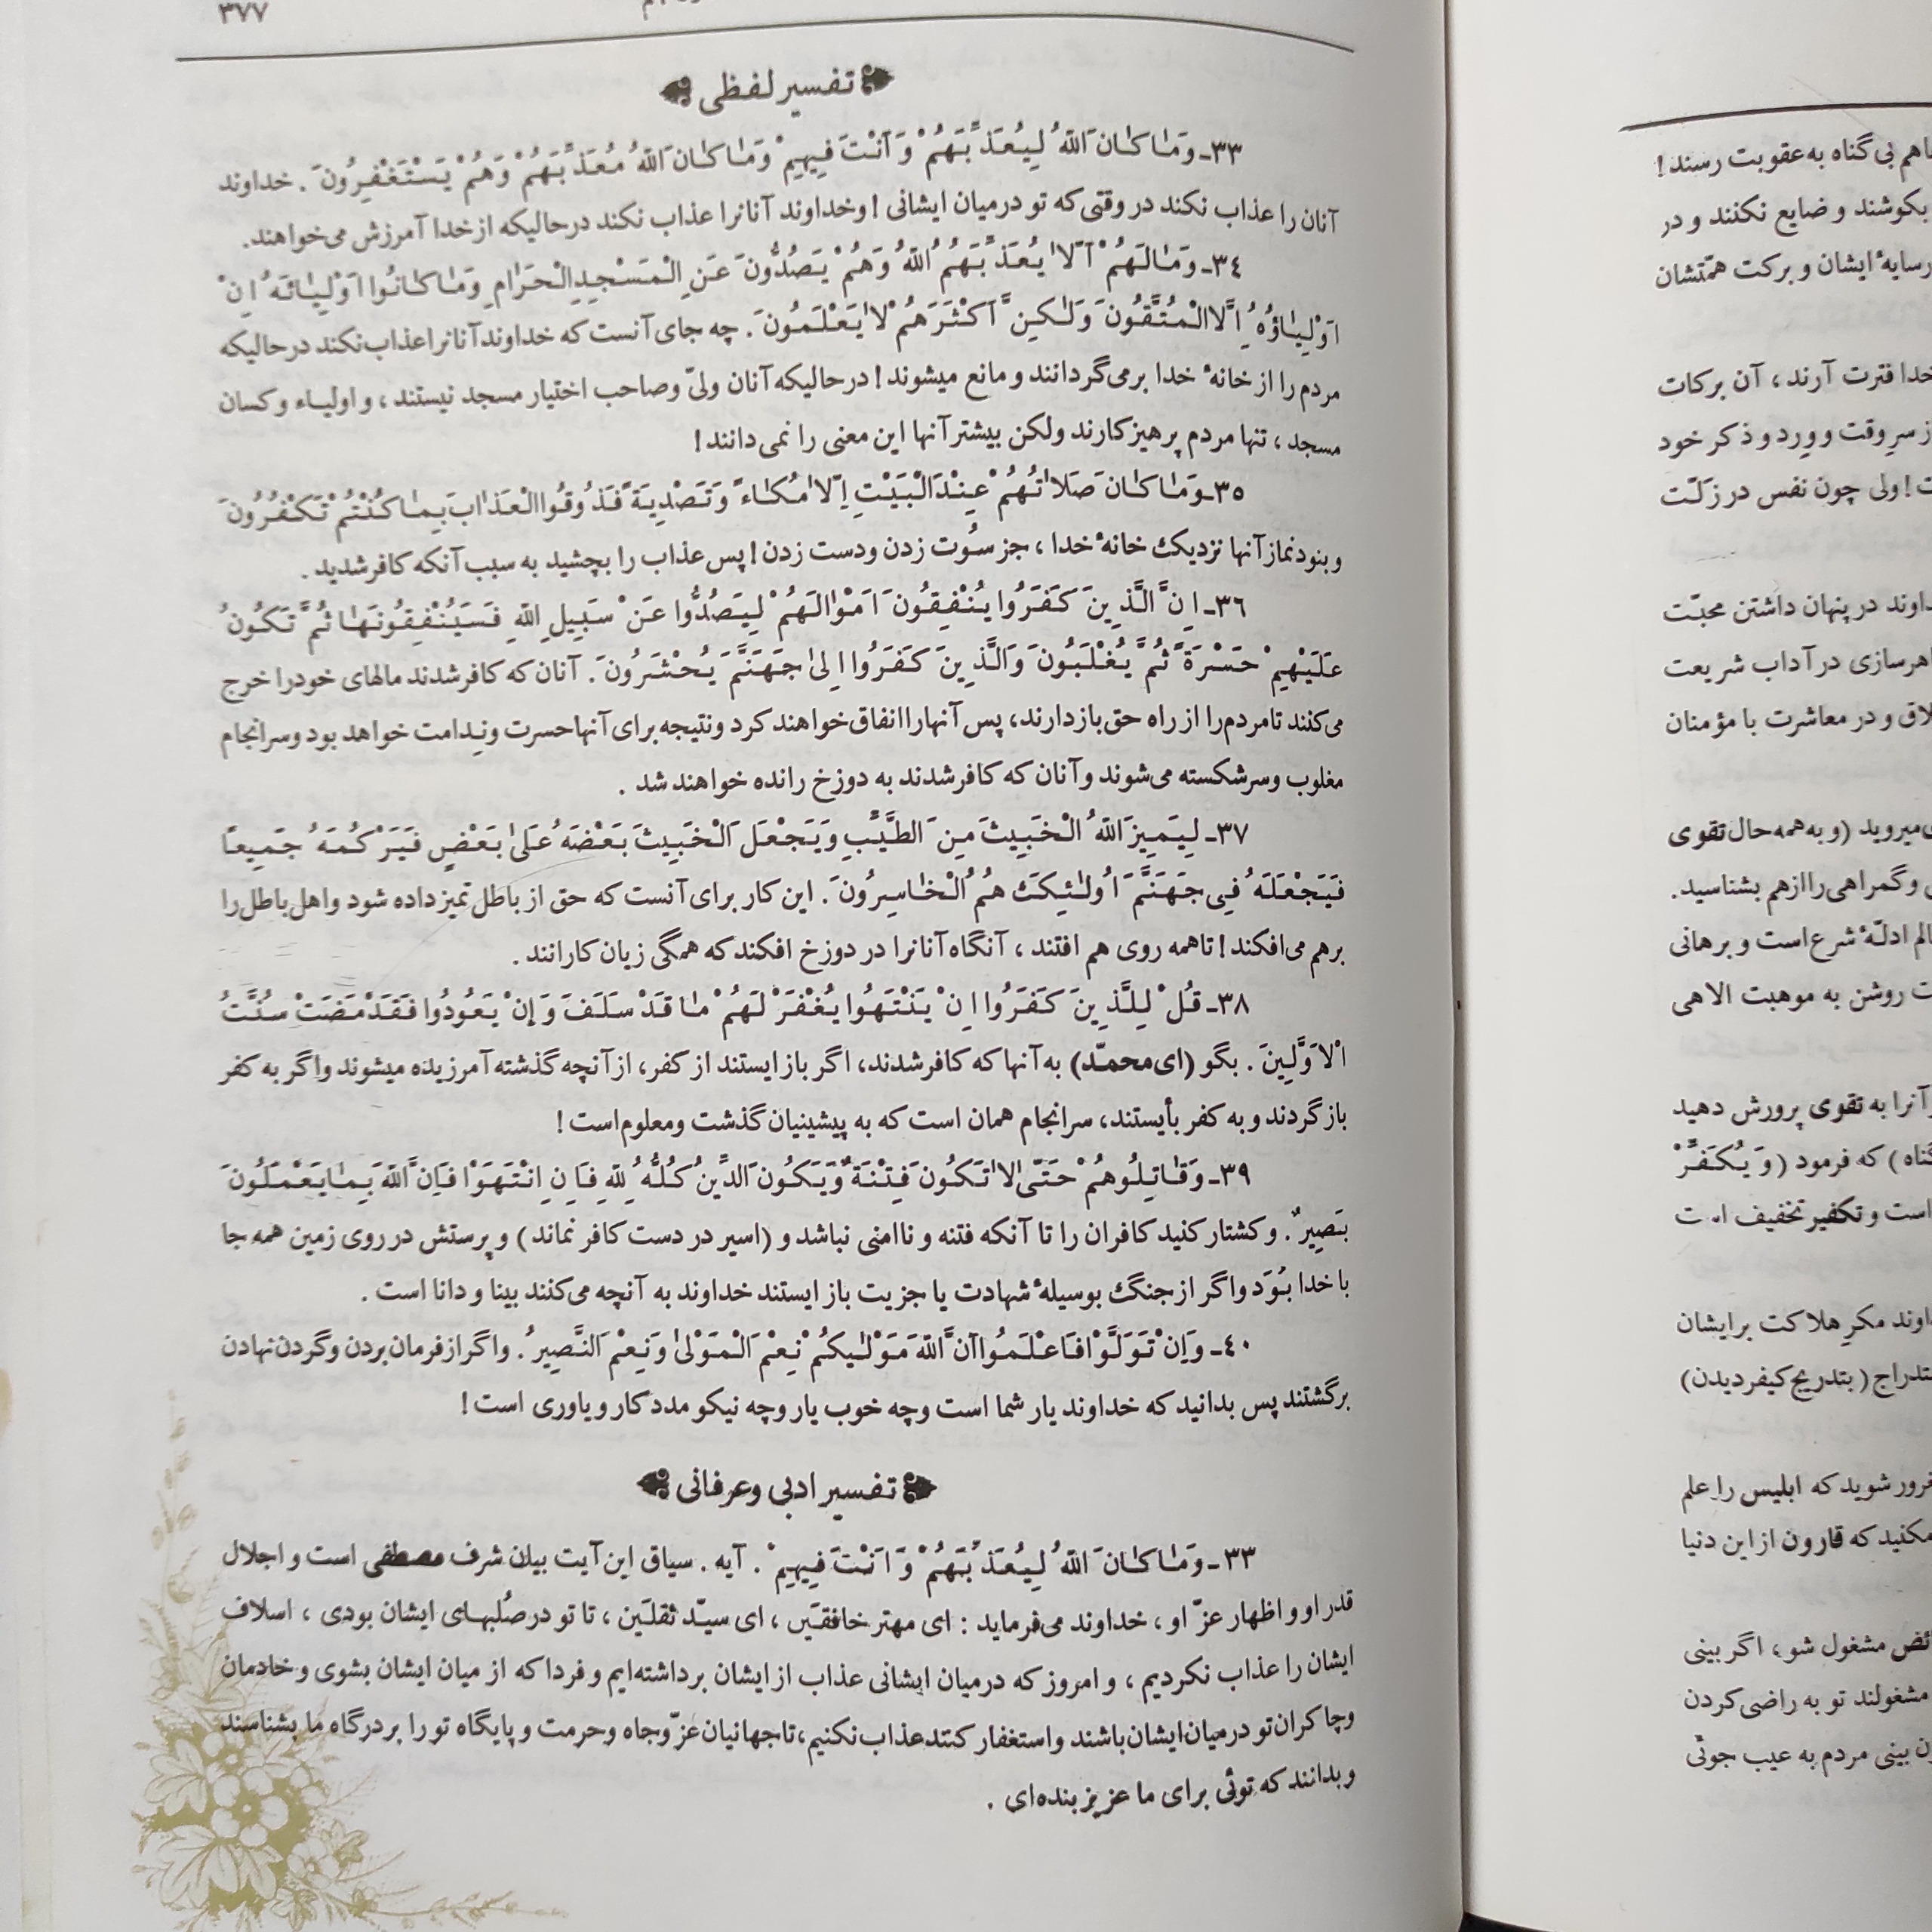 ۳۷۷
تفسیر لفظی
۳۳ـ وَمٰا کٰانَ اللّٰهُ لِیُعَذِّبَهُمْ وَ اَنْتَ فِیهِمْ وَمٰا کٰانَ اللّٰهُ مُعَذِّبَهُمْ وَهُمْ یَسْتَغْفِرُونَ . خداوند
آنان را عذاب نکند در وقتی که تو درمیان ایشانی ! وخداوند آنانرا عذاب نکند درحالیکه ازخدا آمرزش می‌خواهند.
۳٤ـ وَمٰا لَهُمْ اَلّٰا یُعَذِّبَهُمُ اللّٰهُ وَهُمْ یَصُدُّونَ عَنِ الْمَسْجِدِ الْحَرٰامِ وَمٰا کٰانُوا اَوْلِیٰائَهُ اِنْ
اَوْلِیٰاؤُهُ اِلَّا الْمُتَّقُونَ وَلٰکِنَّ اَکْثَرَهُمْ لٰا یَعْلَمُونَ . چه جای آنست که خداوند آنانرا عذاب نکند درحالیکه
مردم را از خانهٔ خدا برمی‌گردانند و مانع میشوند ! درحالیکه آنان ولیّ وصاحب اختیار مسجد نیستند ، و اولیاء وکسان
مسجد ، تنها مردم پرهیزکارند ولکن بیشتر آنها این معنی را نمی‌دانند !
۳٥ـ وَمٰا کٰانَ صَلاٰتُهُمْ عِنْدَ الْبَیْتِ اِلّٰا مُکٰاءً وَتَصْدِیَةً فَذُوقُوا الْعَذٰابَ بِمٰا کُنْتُمْ تَکْفُرُونَ
وبنود نماز آنها نزدیک خانهٔ خدا ، جز سُوت زدن ودست زدن ! پس عذاب را بچشید به سبب آنکه کافر شدید .
۳٦ـ اِنَّ الَّذِینَ کَفَرُوا یُنْفِقُونَ اَمْوٰالَهُمْ لِیَصُدُّوا عَنْ سَبِیلِ اللّٰهِ فَسَیُنْفِقُونَهٰا ثُمَّ تَکُونُ
عَلَیْهِمْ حَسْرَةً ثُمَّ یُغْلَبُونَ وَالَّذِینَ کَفَرُوا اِلیٰ جَهَنَّمَ یُحْشَرُونَ . آنان که کافر شدند مالهای خودرا خرج
می‌کنند تا مردم را از راه حق بازدارند، پس آنها را انفاق خواهند کرد ونتیجه برای آنها حسرت وندامت خواهد بود وسرانجام
مغلوب وسرشکسته می‌شوند وآنان که کافر شدند به دوزخ رانده خواهند شد .
۳۷ـ لِیَمِیزَ اللّٰهُ الْخَبِیثَ مِنَ الطَّیِّبِ وَیَجْعَلَ الْخَبِیثَ بَعْضَهُ عَلیٰ بَعْضٍ فَیَرْکُمَهُ جَمِیعاً
فَیَجْعَلَهُ فِی جَهَنَّمَ اُولٰئِکَ هُمُ الْخٰاسِرُونَ . این کار برای آنست که حق از باطل تمیز داده شود واهل باطل را
برهم می‌افکند ! تا همه روی هم افتند ، آنگاه آنانرا در دوزخ افکند که همگی زیان کارانند .
۳۸ـ قُلْ لِلَّذِینَ کَفَرُوا اِنْ یَنْتَهُوا یُغْفَرْ لَهُمْ مٰا قَدْ سَلَفَ وَ اِنْ یَعُودُوا فَقَدْ مَضَتْ سُنَّتُ
الْاَوَّلِینَ . بگو (ای محمّد) به آنها که کافر شدند، اگر باز ایستند از کفر، از آنچه گذشته آمرزیده میشوند واگر به کفر
بازگردند وبه کفر بأیستند، سرانجام همان است که به پیشینیان گذشت ومعلوم است !
۳۹ـ وَقٰاتِلُوهُمْ حَتّیٰ لٰا تَکُونَ فِتْنَةٌ وَیَکُونَ الدِّینُ کُلُّهُ لِلّٰهِ فَاِنِ انْتَهَوْا فَاِنَّ اللّٰهَ بِمٰا یَعْمَلُونَ
بَصِیرٌ . و کشتار کنید کافران را تا آنکه فتنه و ناامنی نباشد و (اسیر در دست کافر نماند ) و پرستش در روی زمین همه جا
با خدا بُوَد واگر از جنگ بوسیلهٔ شهادت یا جزیت باز ایستند خداوند به آنچه می‌کنند بینا و دانا است .
٤۰ـ وَاِنْ تَوَلَّوْا فَاعْلَمُوا اَنَّ اللّٰهَ مَوْلٰیکُمْ نِعْمَ الْمَوْلیٰ وَنِعْمَ النَّصِیرُ . واگر از فرمان بردن وگردن نهادن
برگشتند پس بدانید که خداوند یار شما است وچه خوب یار وچه نیکو مدد کار و یاوری است !
تفسیر ادبی وعرفانی
۳۳ـ وَمٰا کٰانَ اللّٰهُ لِیُعَذِّبَهُمْ وَ اَنْتَ فِیهِمْ . آیه . سیاق این آیت بیان شرف مصطفی است و اجلال
قدر او و اظهار عزّ او ، خداوند می‌فرماید : ای مهتر خافقَین ، ای سیّد ثقلَین ، تا تو در صُلبهای ایشان بودی ، اسلاف
ایشان را عذاب نکردیم ، و امروز که درمیان ایشانی عذاب از ایشان برداشته‌ایم و فردا که از میان ایشان بشوی و خادمان
وچاکران تو درمیان ایشان باشند واستغفار کنند عذاب نکنیم، تا جهانیان عزّ وجاه وحرمت و پایگاه تو را بردرگاه ما بشناسند
و بدانند که توئی برای ما عزیز بنده‌ای .
هم بی گناه به عقوبت رسند !
بکوشند و ضایع نکنند و در
سایهٔ ایشان و برکت همّتشان
خدا فترت آرند ، آن برکات
از سرِ وقت و وِرد و ذکر خود
! ولی چون نفس در زَلّت
داوند در پنهان داشتن محبّت
سازی در آداب شریعت
و در معاشرت با مؤمنان
میروید (و به همه حال تقوی
وگمراهی را ازهم بشناسید.
ادلّهٔ شرع است و برهانی
روشن به موهبت الاهی
آنرا به تقوی پرورش دهید
گناه ) که فرمود ( وَ یُکَفِّرْ
است و تکفیر تخفیف است
داوند مکرِ هلاکت بر ایشان
ستدراج ( بتدریج کیفر دیدن)
شوید که ابلیس را علم
مکنید که قارون از این دنیا
مشغول شو ، اگر بینی
مشغولند تو به راضی کردن
بینی مردم به عیب جوئی